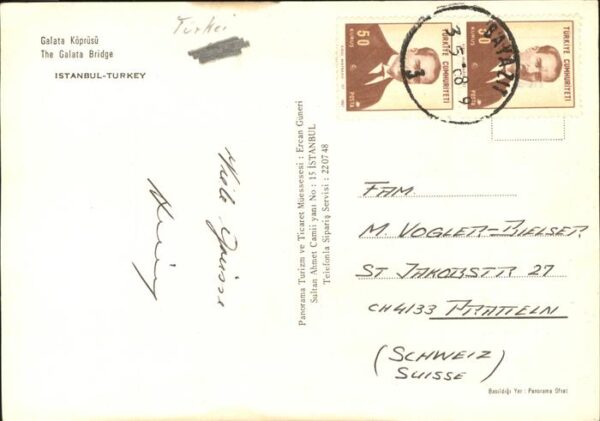 Galata Köprüsü
The Galata Bridge
ISTANBUL-TURKEY
Türkei
50
KURUŞ
TÜRKİYE CUMHURİYETİ
POSTA
50
KURUŞ
TÜRKİYE CUMHURİYETİ
POSTA
BAYAZIT
3.5.68.9
Viele Grüsse
Panorama Turizm ve Ticaret Müessesesi : Ercan Güneri
Sultan Ahmet Camii yanı No : 15 İSTANBUL
Telefonla Sipariş Servisi : 22 07 48
FAM
M. VOGLER-BIELSER
ST JAKOBSTR 27
CH4133 PRATTELN
(SCHWEIZ)
SUISSE
Basıldığı Yer : Panorama Ofset